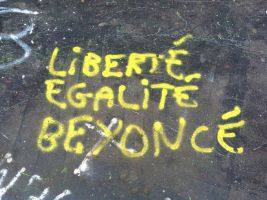 LiBERTÉ
EGALITÉ
BEYONCÉ